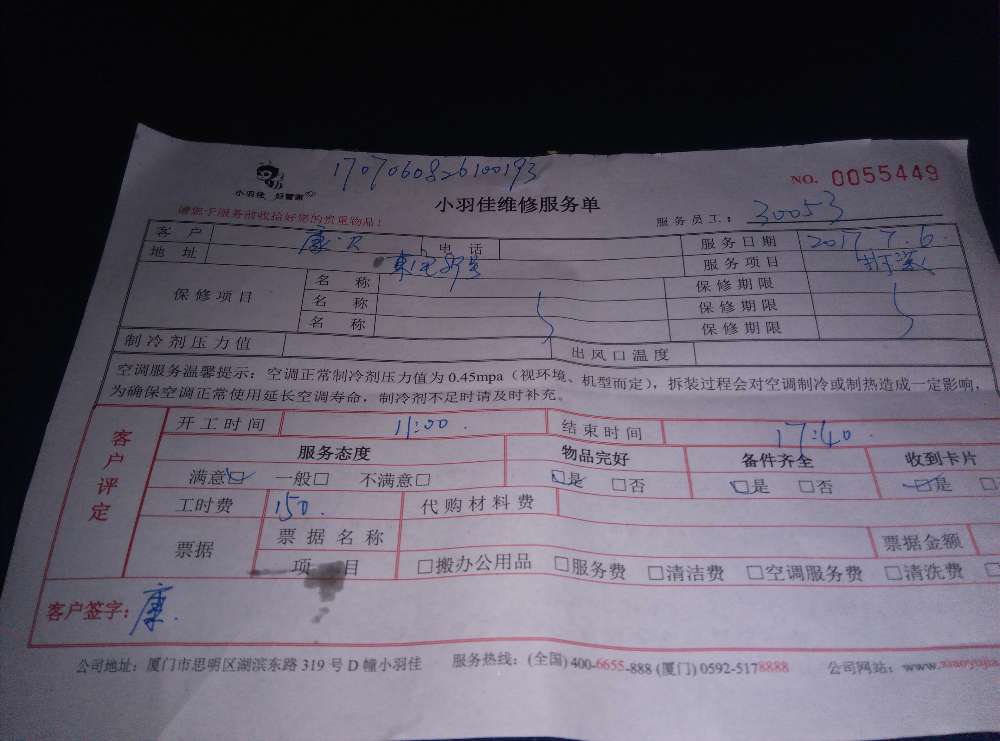 1707060826100193
小羽佳 好管家
NO. 0055449
请您于服务前收拾好您的贵重物品!
小羽佳维修服务单
服务员工: 30053
客户 康 电话 服务日期 2017.7.6.
地址 服务项目
保修项目 名称 保修期限
名称 保修期限
名称 保修期限
制冷剂压力值 出风口温度
空调服务温馨提示:空调正常制冷剂压力值为0.45mpa(视环境、机型而定),拆装过程会对空调制冷或制热造成一定影响,
为确保空调正常使用延长空调寿命,制冷剂不足时请及时补充。
客户评定
开工时间 11:00. 结束时间 17:40.
服务态度 物品完好 备件齐全 收到卡片
满意□ 一般□ 不满意□ □是 □否 □是 □否 □是 □
工时费 150. 代购材料费
票据 票据名称 票据金额
项目 □搬办公用品 □服务费 □清洁费 □空调服务费 □清洗费 □
客户签字: 康.
公司地址:厦门市思明区湖滨东路319号D幢小羽佳 服务热线:(全国)400-6655-888(厦门)0592-5178888 公司网站:www.xiaoyujia